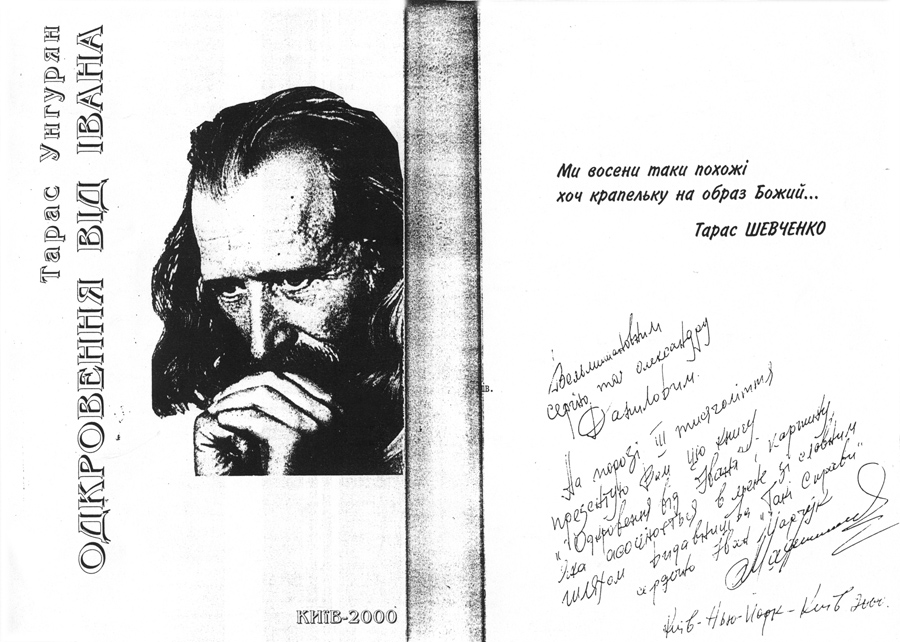 Тарас Унгурян
ОДКРОВЕННЯ ВІД ІВАНА
КИЇВ-2000
ів.
Ми восени таки похожі
хоч крапельку на образ Божий...
Тарас ШЕВЧЕНКО
Вельмишановним
Сергію та Олександру
Даниловим.
На порозі III тисячоліття
презентую Вам цю книгу
"Одкровення від Івана" і картину,
яка асоціюється в мене зі славним
шляхом видавництва "Такі Справи"
сердечно Іван Марчук
Київ-Нью-Йорк-Київ 2000.